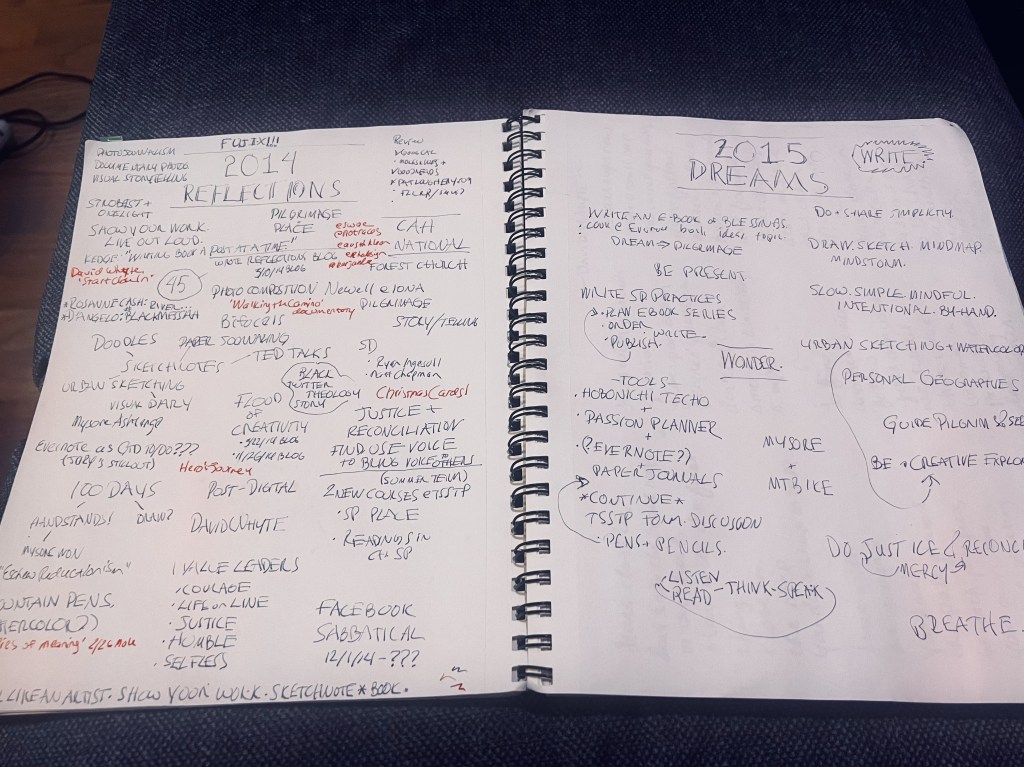 FUJI X1!!!
PHOTOJOURNALISM
DOCUMENTARY PHOTOS
VISUAL STORYTELLING
2014
REFLECTIONS
STROBIST +
ONELIGHT
SHOW YOUR WORK.
LIVE OUT LOUD.
PILGRIMAGE
PLACE
Review
CAH
NATIONAL
FOREST CHURCH
KEDGE: "WRITING BOOK A POST AT A TIME"
WROTE REFLECTIONS BLOG
3/10/14 BLOG
David Whyte
'Start Close In'
45
PHOTO COMPOSITION
Newell e IONA
PILGRIMAGE
'Walking the Camino'
documentary
ROSANNE CASH: RIVER
D'ANGELO: BLACK MESSIAH
Bifocals
STORY/TELLING
DOODLES
PAPER JOURNALING
SKETCHNOTES
TED TALKS
SD
URBAN SKETCHING
VISUAL DIARY
Mysore Ashtanga
BLACK
TWITTER
THEOLOGY
STORY
Christmas Cards!
FLOOD
OF
CREATIVITY
9/22/14 BLOG
11/26/14 BLOG
JUSTICE +
RECONCILIATION
FIND USE VOICE
TO BRING VOICE OTHERS
Evernote as GTD 10/00???
Hero's Journey
(SUMMER TERM)
100 DAYS
POST-DIGITAL
2 NEW COURSES e TSSTP
HANDSTANDS!
DRAW?
DAVID WHYTE
• SP PLACE
• READINGS IN
CH SP
MYSORE MON
"Eschew Reductionism"
I VALUE LEADERS
• COURAGE
• LIFE ON LINE
• JUSTICE
• HUMBLE
• SELFLESS
FACEBOOK
SABBATICAL
12/1/14 - ???
LIKE AN ARTIST • SHOW YOUR WORK • SKETCHNOTE * BOOK •
2015
DREAMS
WRITE
WRITE AN E-BOOK of BLESSINGS.
DREAM → PILGRIMAGE
BE PRESENT
DO + SHARE SIMPLICITY.
DRAW. SKETCH. MINDMAP.
MINDSTORM.
WRITE SD PRACTICES
• PLAN EBOOK SERIES
• ORDER
WRITE.
• PUBLISH.
SLOW. SIMPLE. MINDFUL.
INTENTIONAL. BY-HAND.
WONDER.
URBAN SKETCHING + WATERCOLOR
PERSONAL GEOGRAPHIES
- TOOLS -
• HOBONICHI TECHO
+
• PASSION PLANNER
+
• (EVERNOTE?)
• PAPER JOURNALS
MYSORE
+
MTBIKE
GUIDE PILGRIM
BE A CREATIVE
* CONTINUE *
TSSTP FORM. DISCUSSION
• PENS + PENCILS.
DO JUSTICE
MERCY
• LISTEN
READ - THINK - SPEAK
BREATHE.